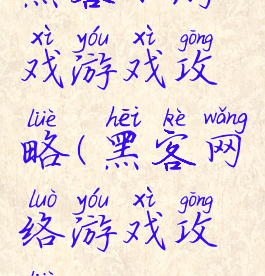 xì yóu xì gōng
戏游戏攻
lüè hēi kè wǎng
略(黑客网
luò yóu xì gōng
络游戏攻